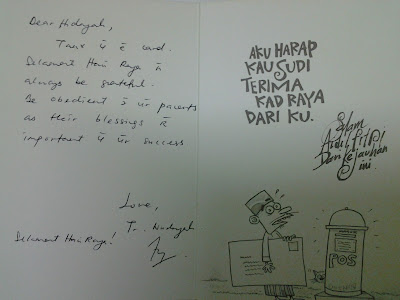 Dear Hidayah,
Tanx 4 e card.
Selamat Hari Raya n
always be grateful.
Be obedient 2 ur parents
as their blessings R
important 4 ur success
Love,
Tr.
Selamat Hari Raya!
AKU HARAP
KAU SUDI
TERIMA
KAD RAYA
DARI KU.
Salam
Aidilfitri
Dari Kejauhan
ini.
POS